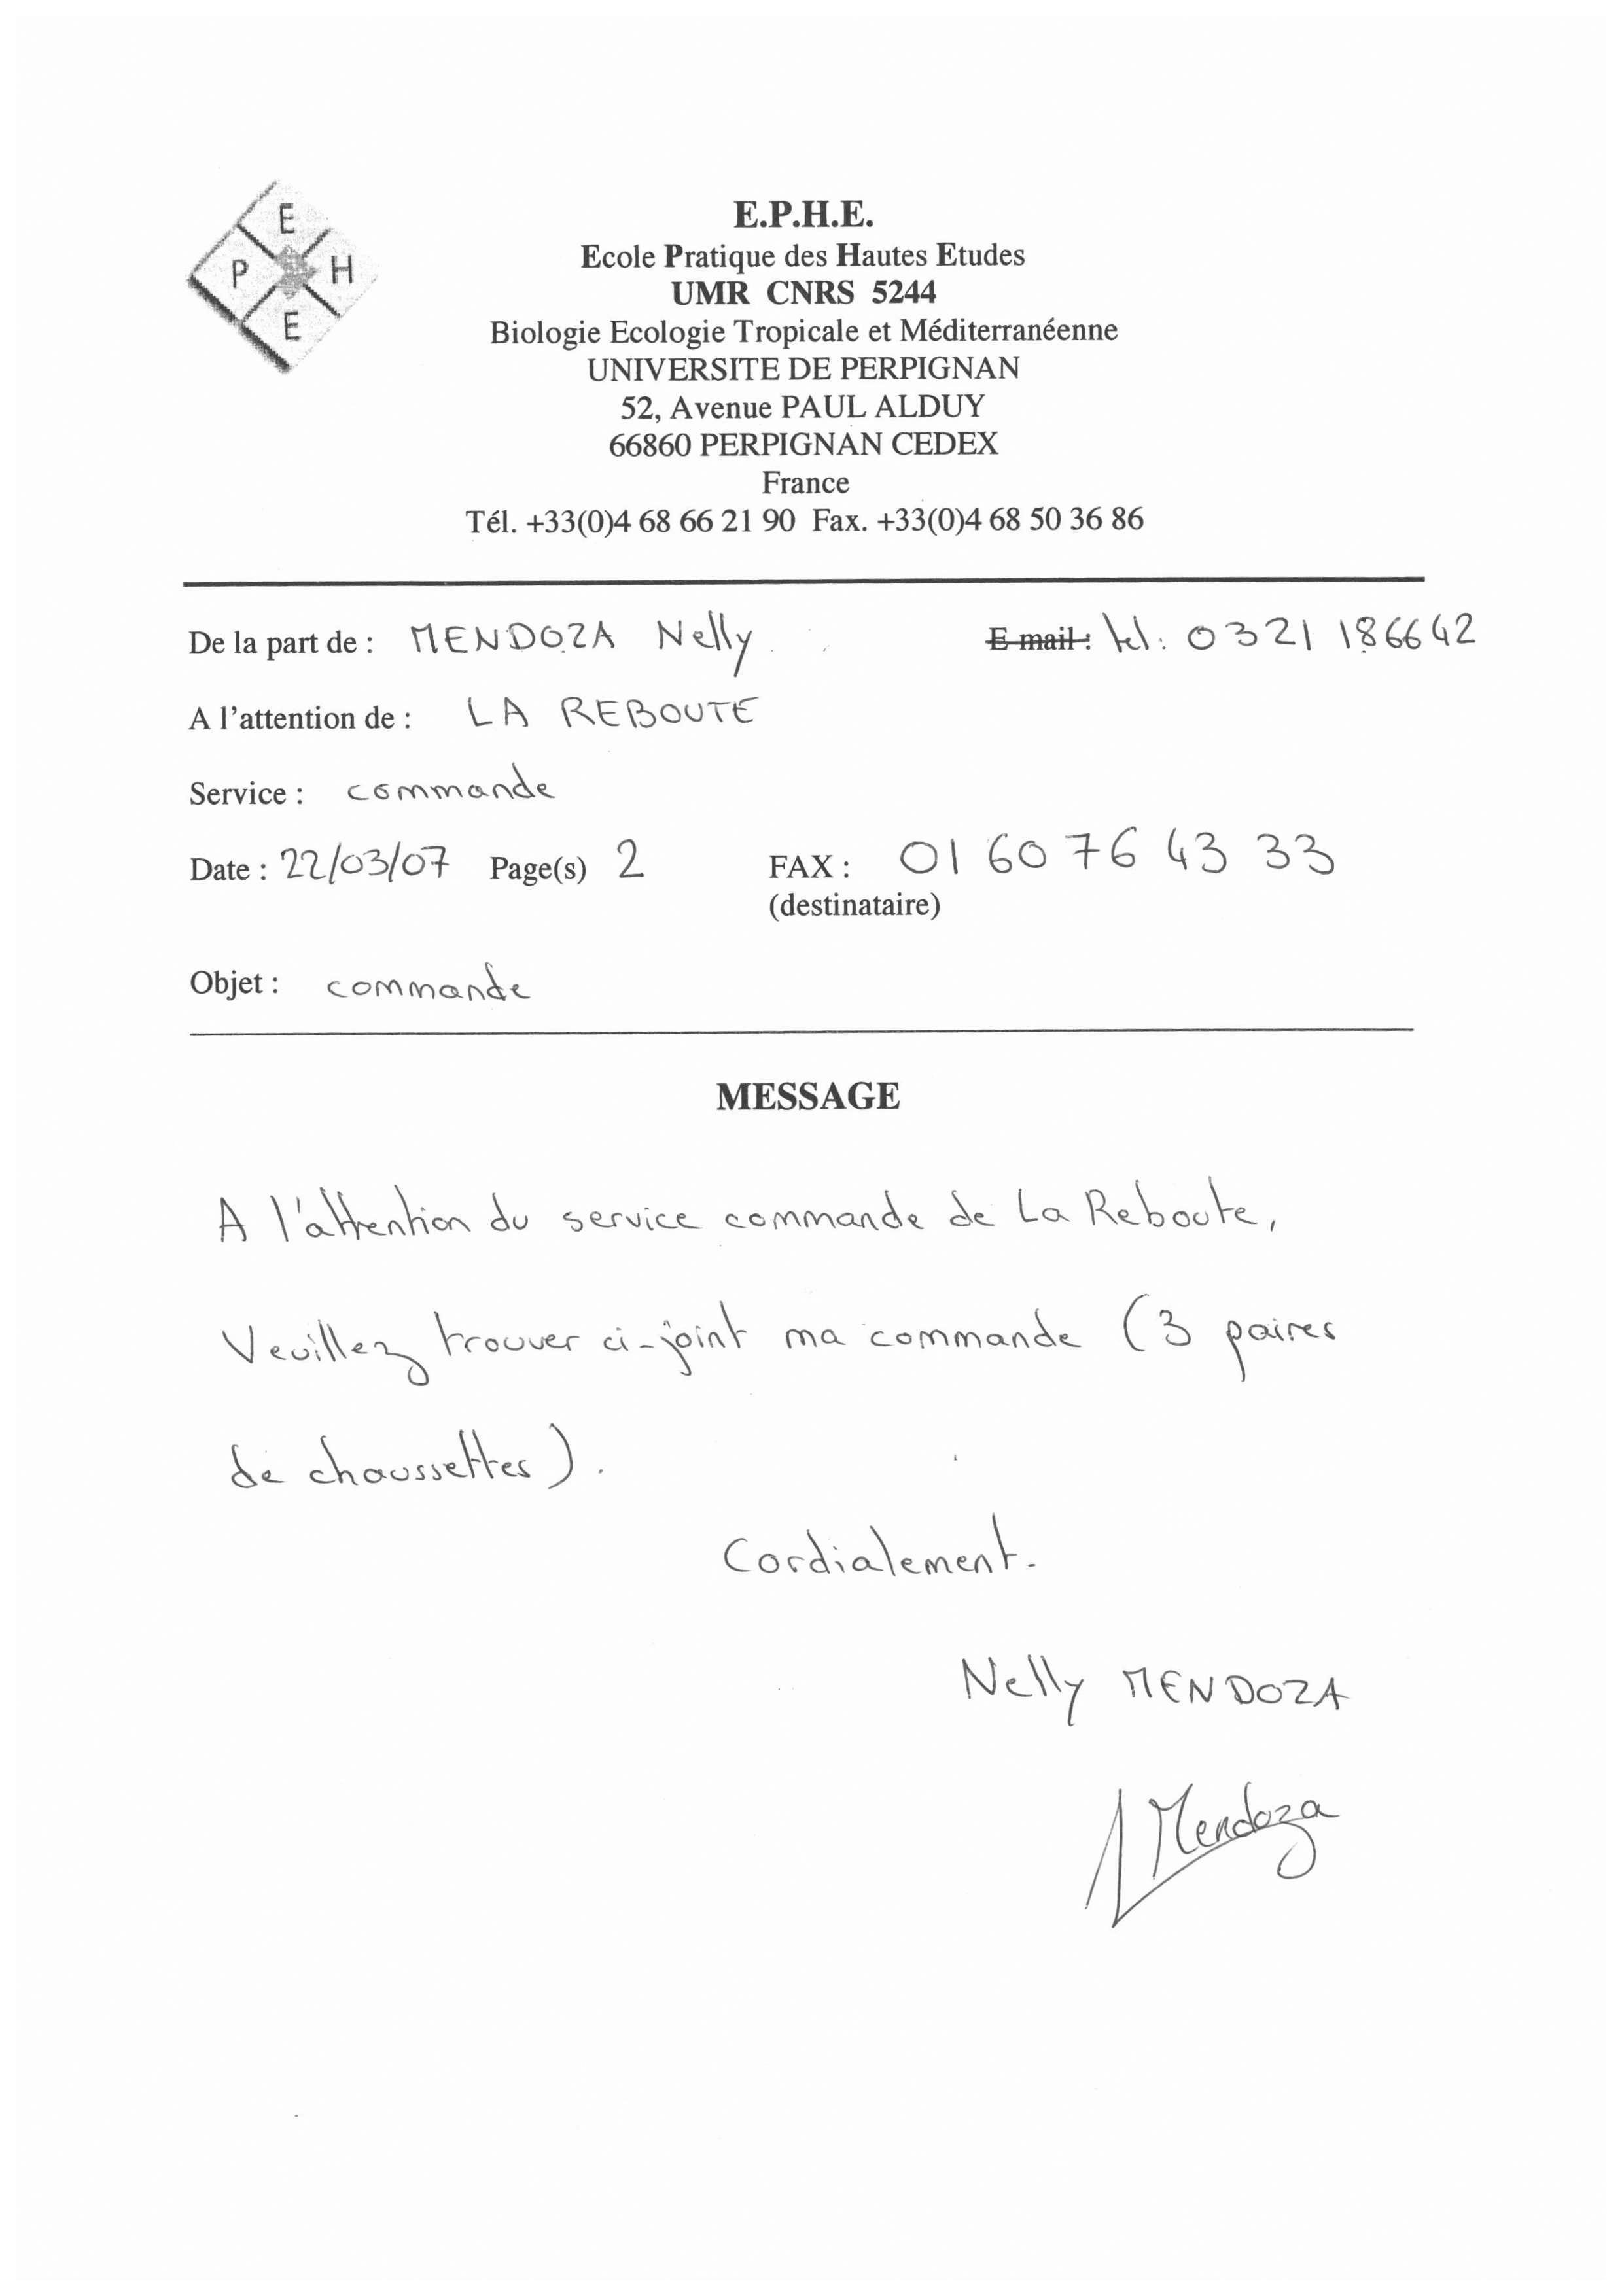 E
P H
E
E.P.H.E.
Ecole Pratique des Hautes Etudes
UMR CNRS 5244
Biologie Ecologie Tropicale et Méditerranéenne
UNIVERSITE DE PERPIGNAN
52, Avenue PAUL ALDUY
66860 PERPIGNAN CEDEX
France
Tél. +33(0)4 68 66 21 90 Fax. +33(0)4 68 50 36 86
De la part de : MENDOZA Nelly E-mail : tel : 0321 186642
A l'attention de : LA REBOUTE
Service : commande
Date : 22/03/07 Page(s) 2 FAX : 01 60 76 43 33
(destinataire)
Objet : commande
MESSAGE
A l'attention du service commande de La Reboute,
Veuillez trouver ci-joint ma commande (3 paires
de chaussettes).
Cordialement.
Nelly MENDOZA
Mendoza